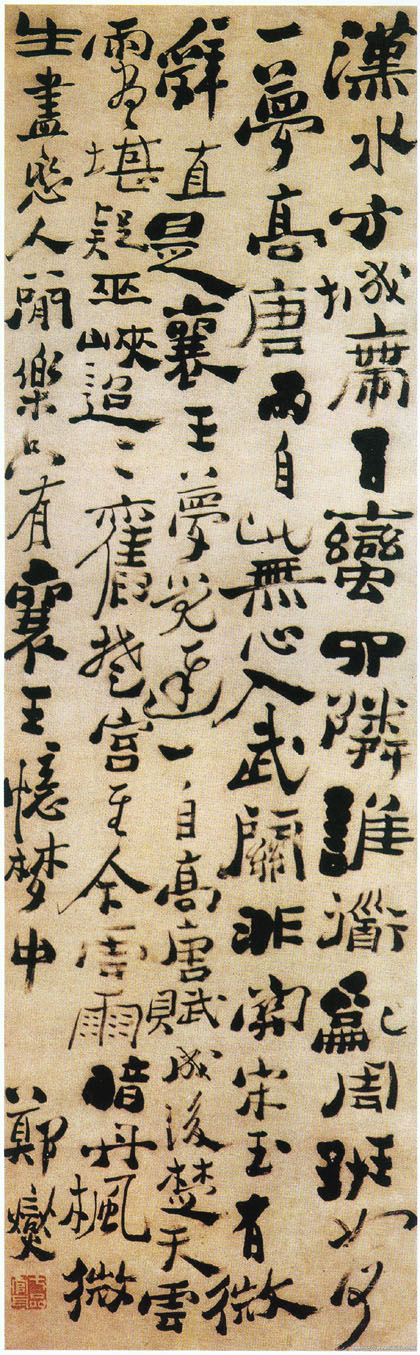 漢水方城帶百蠻四隣誰道亂周班如何
一夢高唐雨自此無心入武關非關宋玉有微
辭直是襄王夢覺遲一自高唐賦成後楚天雲
雨盡堪疑巫峽迢〻舊楚宮至今雲雨暗丹楓微
生盡戀人間樂只有襄王憶夢中
鄭燮